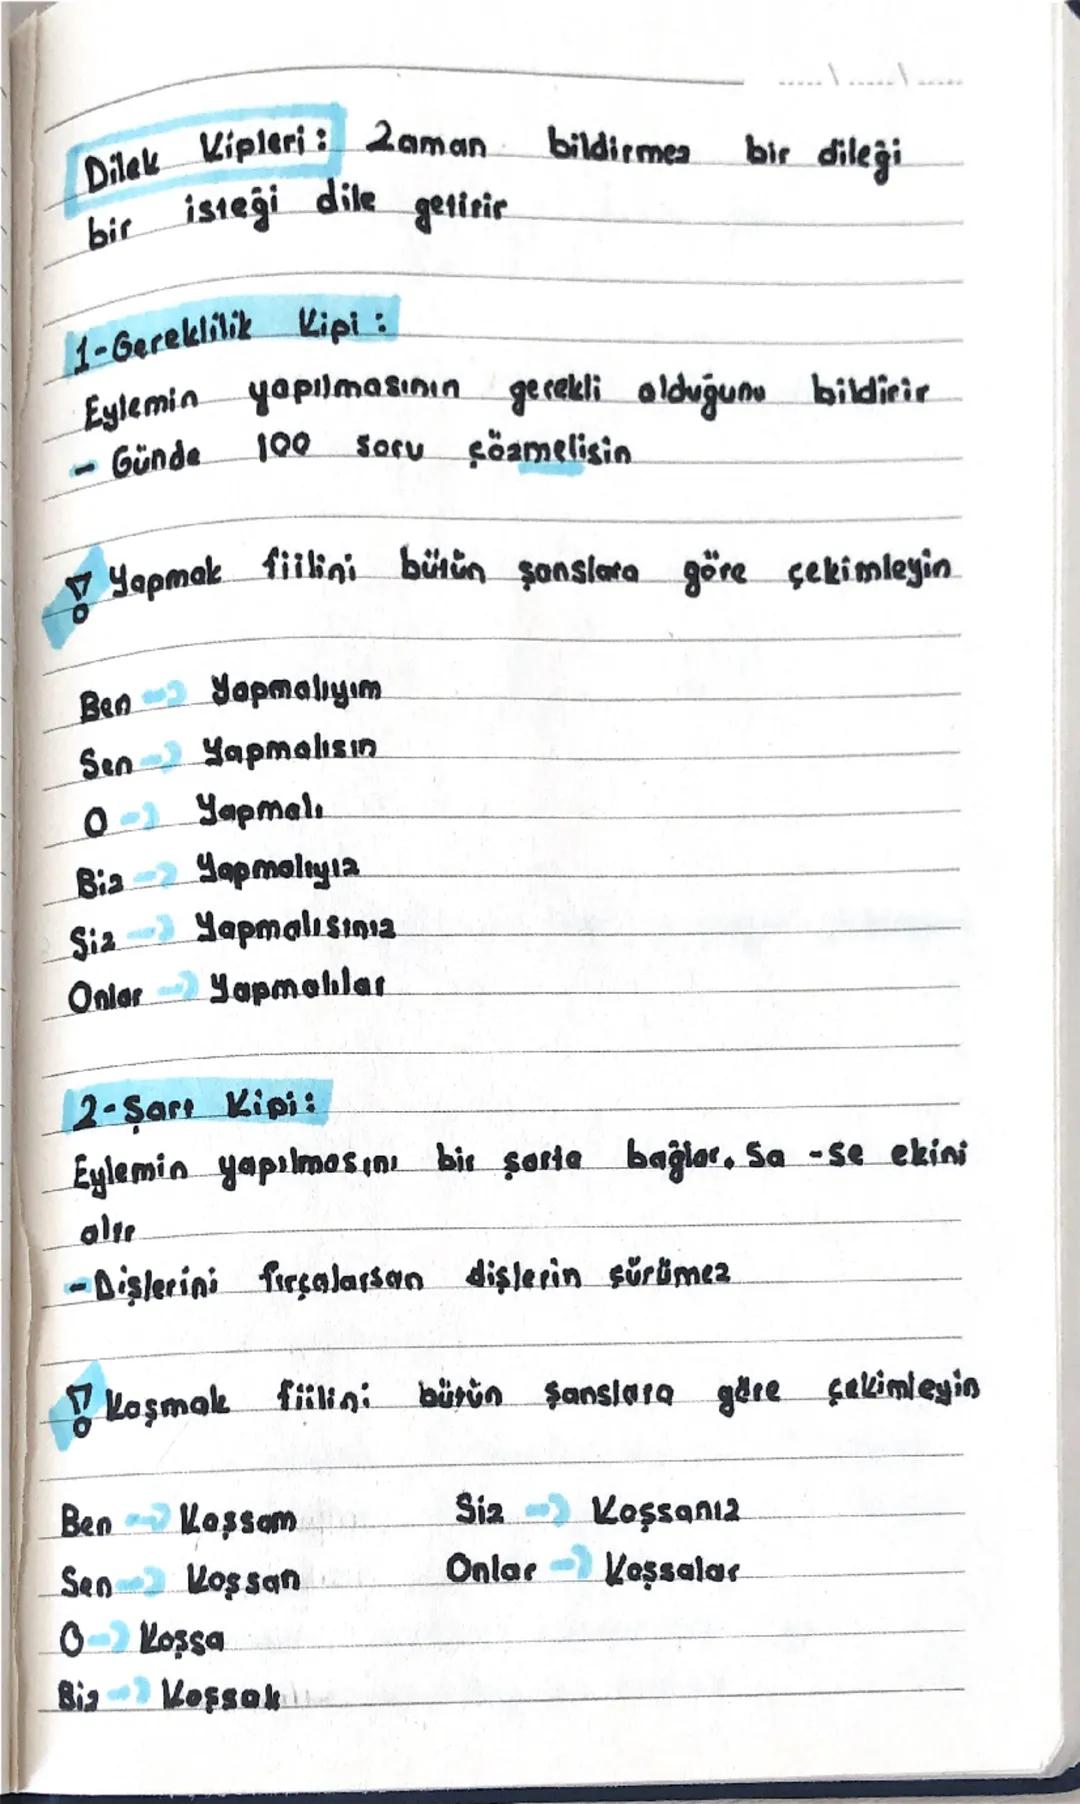 Dilek Kipleri: Zaman bildirmez bir dileği
bir isteği dile getirir
1-Gereklilik Kipi:
Eylemin yapılmasının gerekli olduğunu bildirir
- Günde 100 soru çözmelisin
Yapmak fiilini bütün şanslara göre çekimleyin
Ben → Yapmalıyım
Sen → Yapmalısın
O → Yapmalı
Biz → Yapmalıyız
Siz → Yapmalısınız
Onlar → Yapmalılar
2-Şart Kipi:
Eylemin yapılmasını bir şarta bağlar. Sa -se ekini
alır
-Dişlerini fırçalarsan dişlerin çürümez
Koşmak fiilini bütün şanslara göre çekimleyin
Ben → Koşsam
Sen → Koşsan
O → Koşsa
Biz → Koşsak
Siz → Koşsanız
Onlar → Koşsalar